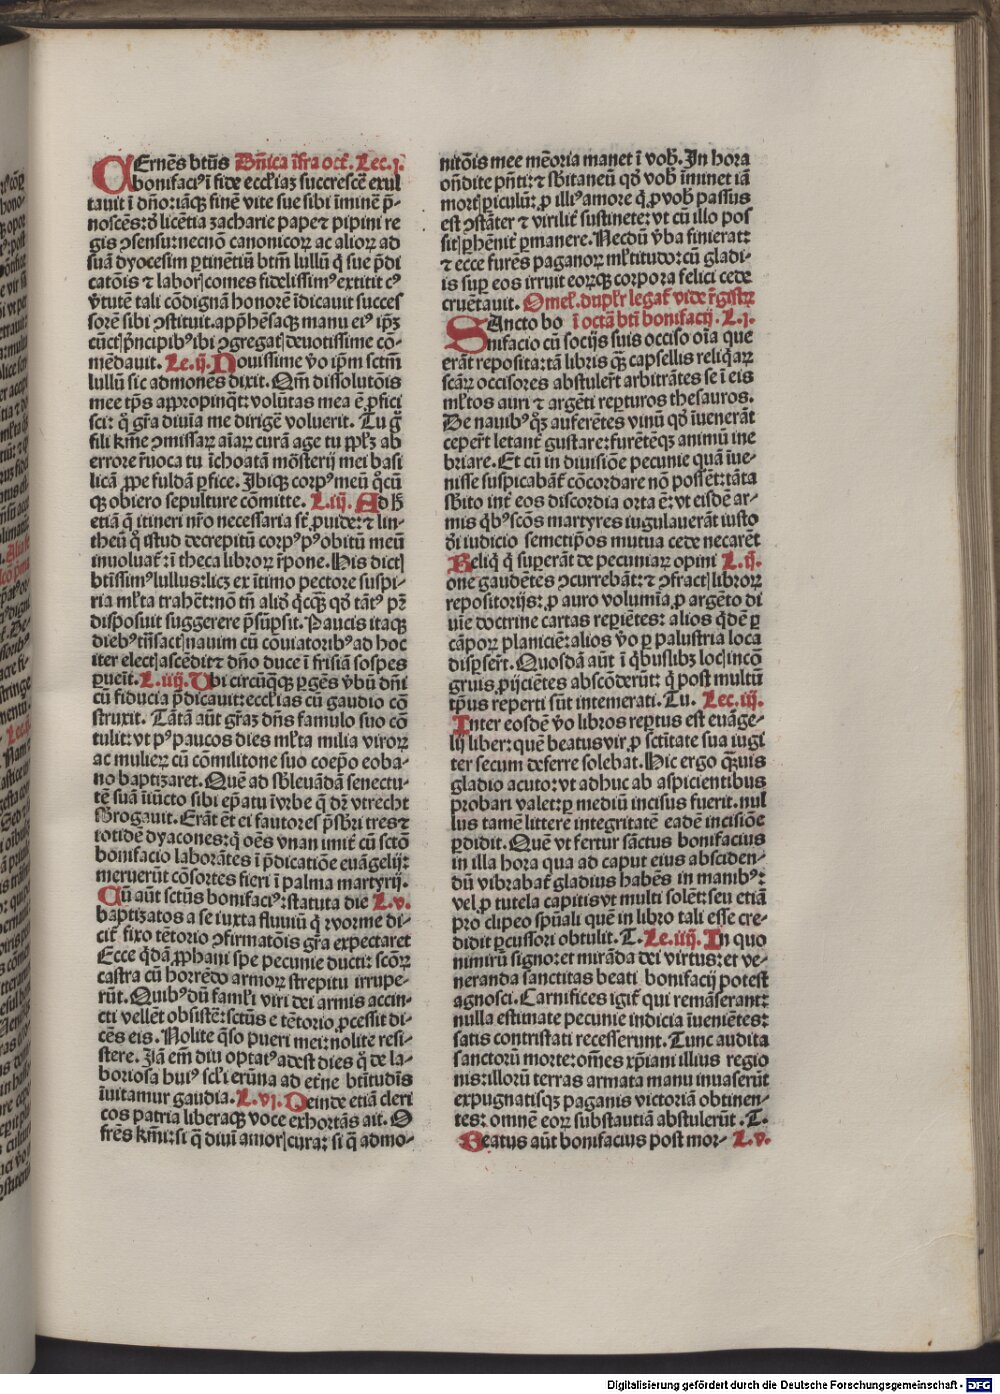 CErnēs btūs Dn̄ica īfra oct̄. Lec.j.
bonifaciꝰ ī fide eccĺiaȝ succrescē exul
tauit ī dn̄o: iāqȝ finē vite sue sibi īminē p̄-
noscēs: d̄ licētia zacharie pape ⁊ pipini re
gis ꝯsensu: necnō canonicoꝝ ac alioꝝ ad
suā dyocesim ꝑtinētiū btm̄ lullū q̄ sue p̄di
catōis ⁊ laborꝭ comes fidelissimꝰ extitit cꝰ
v̄tutē tali cōdignā honorē īdicauit succes
sorē sibi ꝯstituit. app̄hēsaqȝ manu eiꝰ ip̄ȝ
cūctꝭ pͥncipibꝰ ibi ꝯgregatꝭ deuotissime cō-
mēdauit. Le.ij. Nouissime v̄o ip̄m sctm̄
lullū sic admonēs dixit. Qm̄ dissolutōis
mee tp̄s appropinqͣt: volūtas mea ē ꝑfici
sci: q̄ gr̄a diuīa me dirigē voluerit. Tu g̊
fili km̄e ꝯmissaꝝ aīaꝝ curā age tu pp̄ĺȝ ab
errore r̄uoca tu īchoatā mōsterij mei basi
licā ꝓpe fuldā ꝑfice. Ibiqȝ corpꝰ meū q̊cū
qȝ obiero sepulture cōmitte. L.iij. Ad h̄
etiā q̄ itineri nr̄o necessaria st̄ ꝓuide: ⁊ lin-
theū q̊ istud decrepitū corpꝰ pꝰ obitū meū
inuoluat̄: ī theca libroꝝ r̄pone. His dictꝭ
btīssimꝰ lullus: licȝ ex ītimo pectore suspi-
ria mĺta trahēt: nō tn̄ aliď q̄cqͣȝ qď tātꝰ pr̄
disposuit suggerere p̄sūpsit. Paucis itaqȝ
diebꝰ tn̄sactꝭ nauim cū cōuiatoribꝰ ad hoc
iter electꝭ ascēdit ⁊ dn̄o duce ī frisiā sospes
ꝑueīt. L.iiij. Vbi circūqͣqȝ ꝑgēs v̄bū dn̄i
cū fiducia p̄dicauit: eccĺias cū gaudio cō
struxit. Tātā aūt gr̄aȝ dn̄s famulo suo cō
tulit: vt pꝰ paucos dies mĺta milia viroꝝ
ac mulieꝝ cū cōmilitone suo coepō eoba-
no baptizaret. Quē ad sƀleuādā senectu-
tē suā iūcto sibi ep̄atu ī vrbe q̄ dr̄ vtrecht
sƀrogauit. Erāt ēt ei fautores p̄sƀri tres ⁊
totidē dyacones: q̇ oēs vnan imit̄ cū sctō
bonifacio laborātes ī p̄dicatiōe euāgelij:
meruerūt cōsortes fieri ī palma martyrij.
Cū aūt sctūs bonifaciꝰ: statuta die L.v.
baptizatos a se iuxta fluuiū q̇ vorme di-
cit̄ fixo tētorio ꝯfirmatōis gr̄a expectaret
Ecce q̇dā ꝓphani spe pecunie ducti: scōꝝ
castra cū horrēdo armoꝝ strepitu irrupe-
rūt. Quibꝰ dū famĺi viri dei armis accin-
cti vellēt obsistē: sctūs e tētorio ꝓcessit di-
cēs eis. Nolite q̄so pueri mei: nolite resi-
stere. Iā em̄ diu optatꝰ adest dies q̇ de la-
boriosa huiꝰ scĺi erūna ad et̄ne btītudīs
īuitamur gaudia. L.vj. Deinde etiā cleri
cos patria liberaqȝ voce exhortās ait. O
fr̄ēs km̄i: si q̄ diuī amorꝭ cura: si q̄ admo-
nitōis mee mēoria manet ī voḃ. In hora
on̄dite pn̄ti: ⁊ sƀitaneū qď voḃ īminet iā
mortꝭ piculū: ꝓ illiꝰ amore q̇ ꝓ voḃ passus
est ꝯstāter ⁊ viriliē sustinete: vt cū illo pos
sitꝭ ꝑhēnit̄ ꝑmanere. Necdū v̄ba finierat:
⁊ ecce furēs paganoꝝ mĺtitudo: cū gladi-
is suꝑ eos irruit eoꝝqȝ corpora felici cede
cruētauit. Omel̄. dupĺr legat̄ vide r̄gistꝝ
SAncto bo ī octā btī bonifacij. L.j.
nifacio cū socijs suis occiso oīa que
erāt reposita: tā libris qͣȝ capsellis reliq̇aꝝ
scāꝝ occisores abstuler̄t arbitrātes se ī eis
mĺtos auri ⁊ argēti reꝑturos thesauros.
De nauibꝰ q̊qȝ auferētes vinū qď īuenerāt
ceper̄t letant̄ gustare: furētēqȝ animū ine
briare. Et cū in diuisiōe pecunie quā īue-
nisse suspicabāt̄ cōcordare nō possēt: tāta
sƀito int̄ eos discordia orta ē: vt eisdē ar-
mis q̇bꝰ scōs martyres iugulauerāt iusto
di iudicio semetip̄os mutua cede necarēt
Reliq̇ q̇ suꝑerāt de pecuniaꝝ opini L.ij.
one gaudētes ꝯcurrebāt: ⁊ ꝯfractꝭ libroꝝ
repositorijs: ꝓ auro volumīa, ꝓ argēto di
uīe doctrine cartas reꝑiētes: alios q̇dē ꝑ
cāpoꝝ planiciē: alios v̄o ꝑ palustria loca
disꝑser̄t. Quosdā aūt ī q̇buslibȝ locꝭ incō
gruis ꝓijciētes abscōderūt: q̇ post multū
tp̄us reperti sūt intemerati. Tu. Lec.iij.
Inter eosdē v̄o libros reꝑtus est euāge-
lij liber: quē beatus vir ꝓ sctītate sua iugi
ter secum deferre solebat. Hic ergo qͣȝuis
gladio acuto: vt adhuc ab aspicientibus
probari valet: ꝑ mediū incisus fuerit. nul
lus tamē littere integritatē eadē incisiōe
ꝑdidit. Quē vt fertur sāctus bonifacius
in illa hora qua ad caput eius absciden-
dū vibrabat̄ gladius habēs in manibꝰ:
vel ꝓ tutela capitis vt multi solēt: seu etiā
pro clipeo spūali quē in libro tali esse cre-
didit ꝑcussori obtulit. T. Le.iiij. In quo
nimirū signo: et mirāda dei virtus: et ve-
neranda sanctitas beati bonifacij potest
agnosci. Carnifices igit̄ qui remāserant:
nulla estimate pecunie indicia īueniētes:
satis contristati recesserunt. Tunc audita
sanctorū morte: om̄es xp̄iani illius regio
nis: illorū terras armata manu inuaserūt
expugnatisqȝ paganis victoriā obtinen-
tes: omnē eoꝝ substantiā abstulerūt. T.
Beatus aūt bonifacius post mor- L.v.
Digitalisierung gefördert durch die Deutsche Forschungsgemeinschaft - DFG